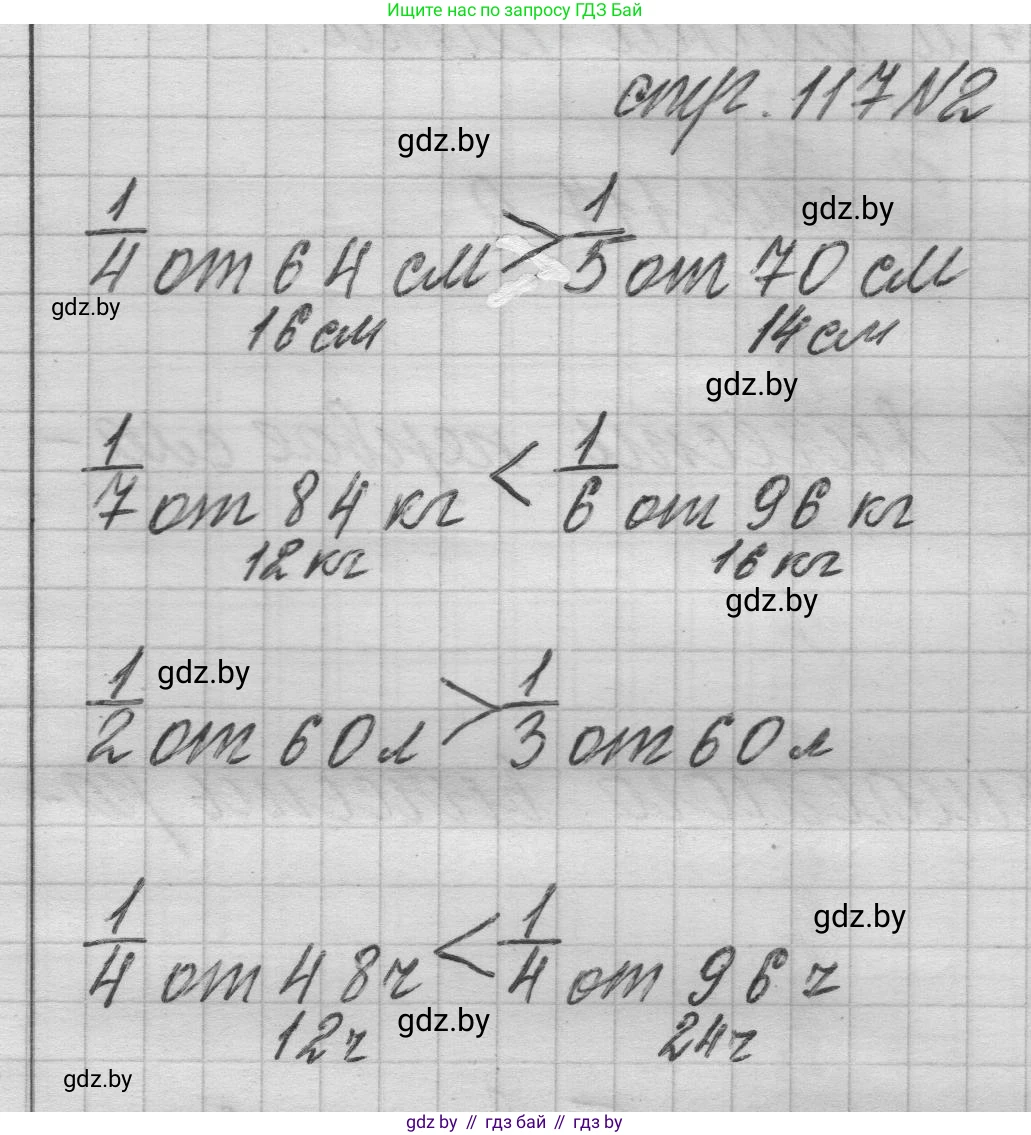 Ищите нас по запросу ГДЗ Бай
стр. 117 №2
gdz.by
gdz.by
1/4 от 64 см > 1/5 от 70 см
gdz.by
16 см 14 см
gdz.by
1/7 от 84 кг < 1/6 от 96 кг
12 кг 16 кг
gdz.by
gdz.by
1/2 от 60 л > 1/3 от 60 л
gdz.by
1/4 от 48 ч < 1/4 от 96 ч
gdz.by
12 ч 24 ч
gdz.by
gdz by // гдз бай // гдз by